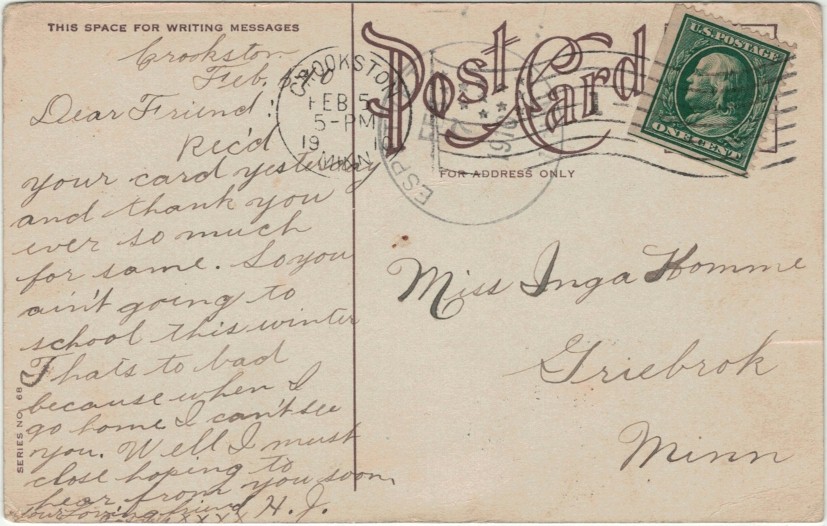 THIS SPACE FOR WRITING MESSAGES
Crookston
Feb.
Dear Friend:
Rec'd
your card yesterday
and thank you
ever so much
for same. So you
ain't going to
school this winter
Thats to bad
because when I
go home I can't see
you. Well I must
close hoping to
hear from you soon
Your loving friend H. J.
xxxxx
SERIES NO. 68
Post Card
FOR ADDRESS ONLY
CROOKSTON
FEB 5
5-PM
19 10
MINN
ESP
FEB
7
1910
U.S. POSTAGE
ONE CENT
Miss Inga Homme
Griebrok
Minn